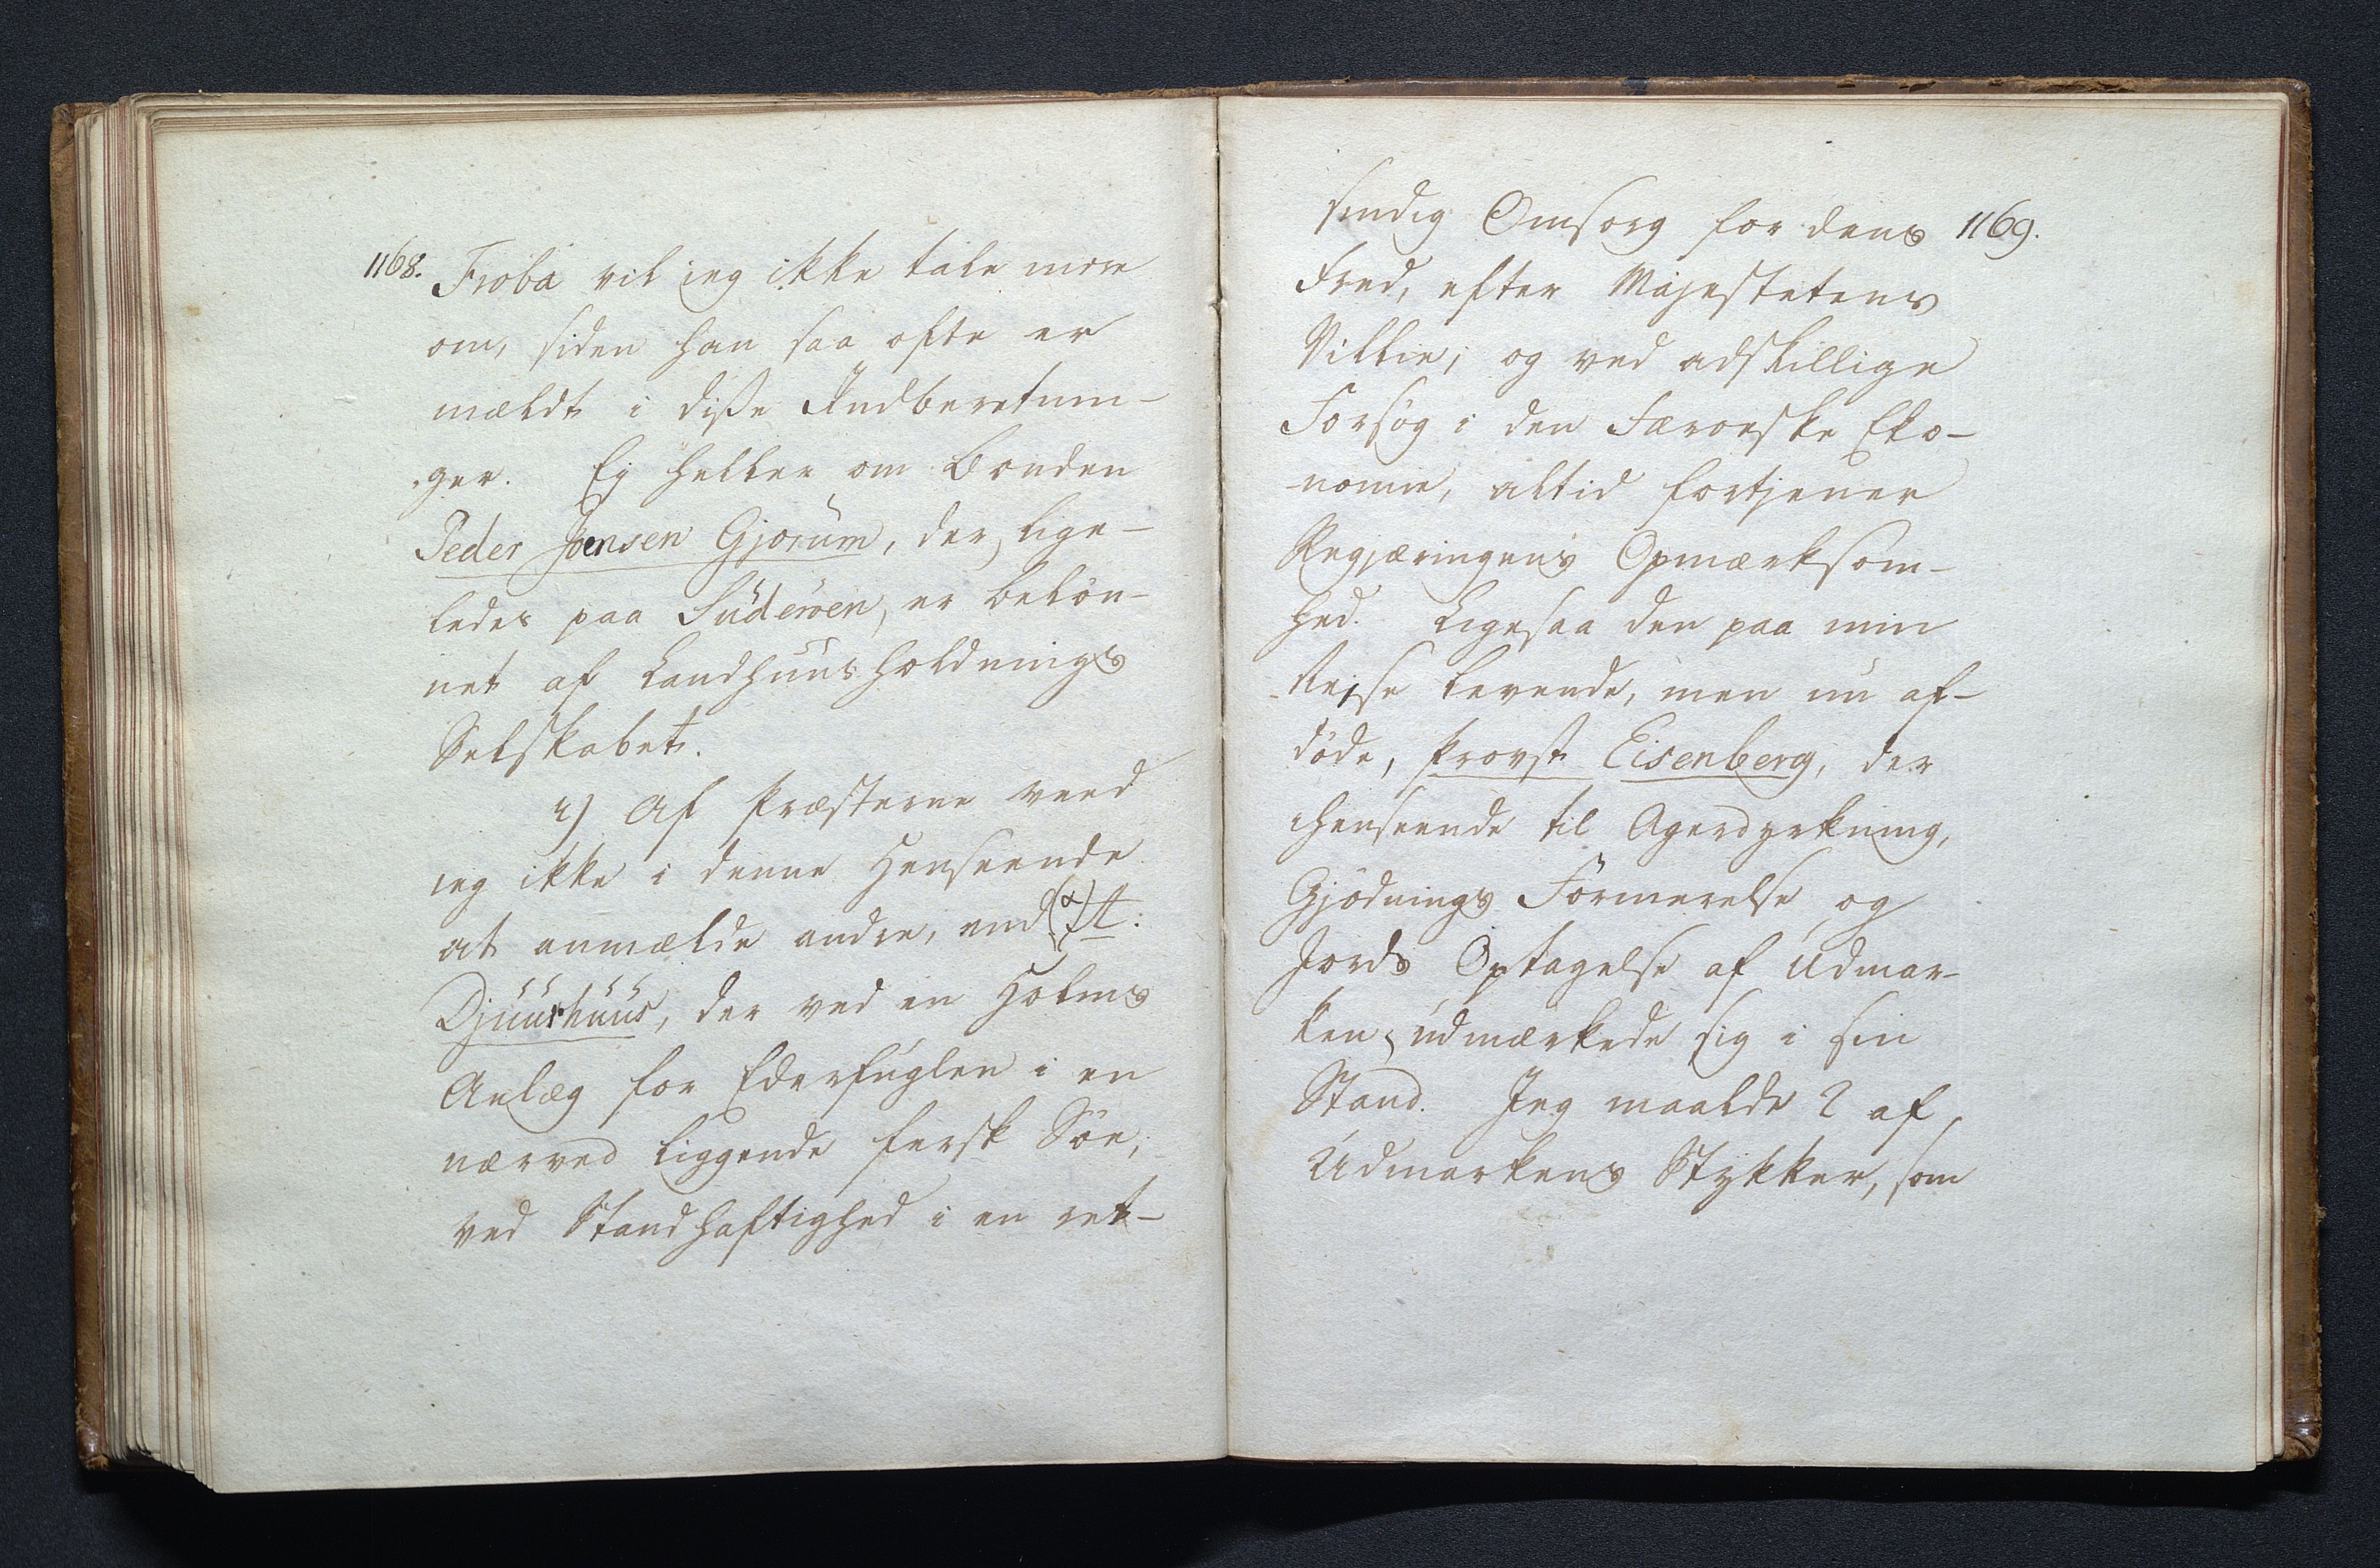 1168.
Froba vil ieg ikke tale mere
om, siden han saa ofte er
mældt i disse Indberetnin-
ger. Ej heller om Bonden
Peder Joensen Gjorum, der, lige-
ledes paa Süderøen, er beløn-
net af Landhuusholdnings
Selskabet.
4) Af Præsterne veed
ieg ikke i denne Henseende
at anmælde andre, end (α) Hr:
Djuurhuus, der ved en Holms
Anlæg for Ederfuglen i en
nærved liggende fersk Søe,
ved Standhaftighed i en ret-
1169.
sindig Omsorg for dens
Fred, efter Majestetens
Villie; og ved adskillige
Forsøg i den Færoeske Eko-
nomie, altid fortjener
Regjæringens Opmærksom-
hed. Ligesaa den paa min
Rejse levende, men nu af-
døde, Provst Eisenberg, der
henseende til Agerdyrkning,
Gjødnings Formerelse, og
Jords Optagelse af Udmar-
ken, udmærkede sig i sin
Stand. Jeg maalde 2 af
Udmarkens Stykker, som